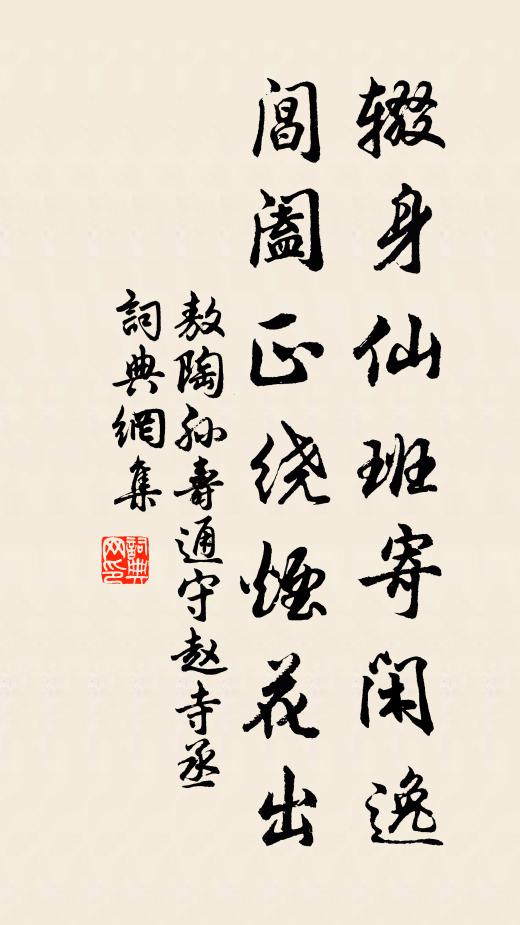 辍身仙班寄闲逸
阊阖正绕烟花出
敖陶孙寿通守赵寺丞
詞典網集
詞典网印